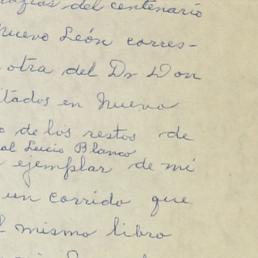 del centenario
Nuevo León corres-
otra del Dr Don
itados en Nuevo
de los restos de
al Lucio Blanco
ejemplar de mi
un corrido que
mismo libro